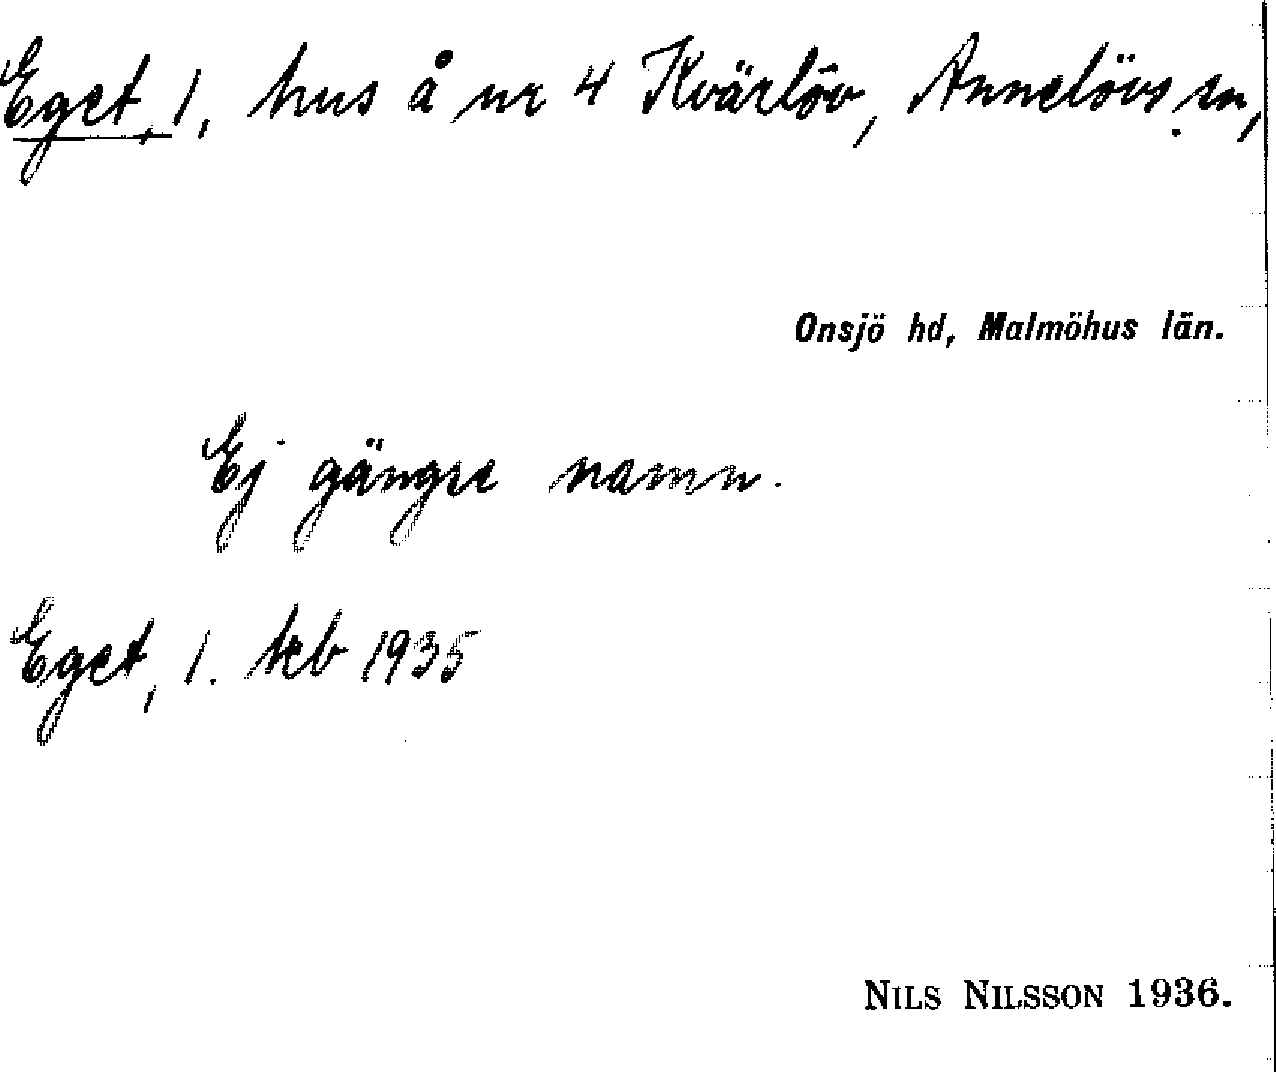 Eget, 1, hus å nr 4 Kvärlöv, Annelövs sn,
Onsjö hd, Malmöhus län.
Ej gängse namn.
Eget, 1. kb 1935
NILS NILSSON 1936.